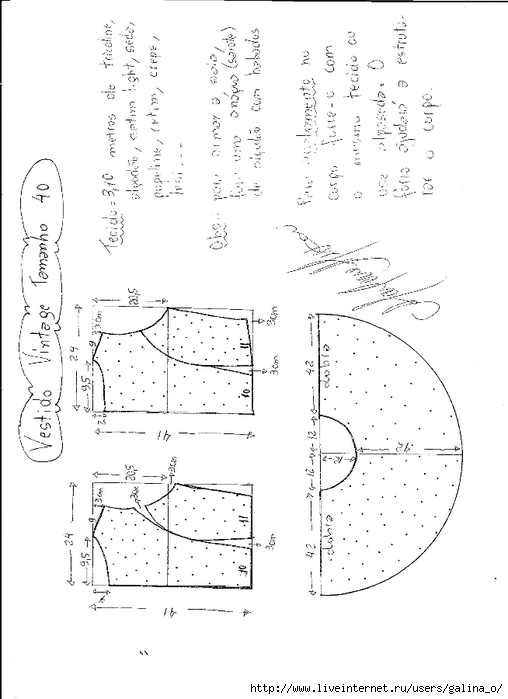 Vestido Vintage Tamanho 40
Tecido = 3,10 metros de tricoline,
algodão, cetim light, seda,
popeline, cetim, crepe,
Obs: para armar a saia,
faça uma anágua (saiote)
de algodão com babados
Para acabamento no
corpo forre-o com
o mesmo tecido ou
use
O
forro ajudará a estrutu-
rar o corpo.
24
9,5
9
3cm
20,5
2
41
10
11
3cm
3cm
24
9,5
9
3cm
20,5
3cm
41
10
11
3cm
42
12
12
42
dobra
dobra
12
42
http://www.liveinternet.ru/users/galina_o/